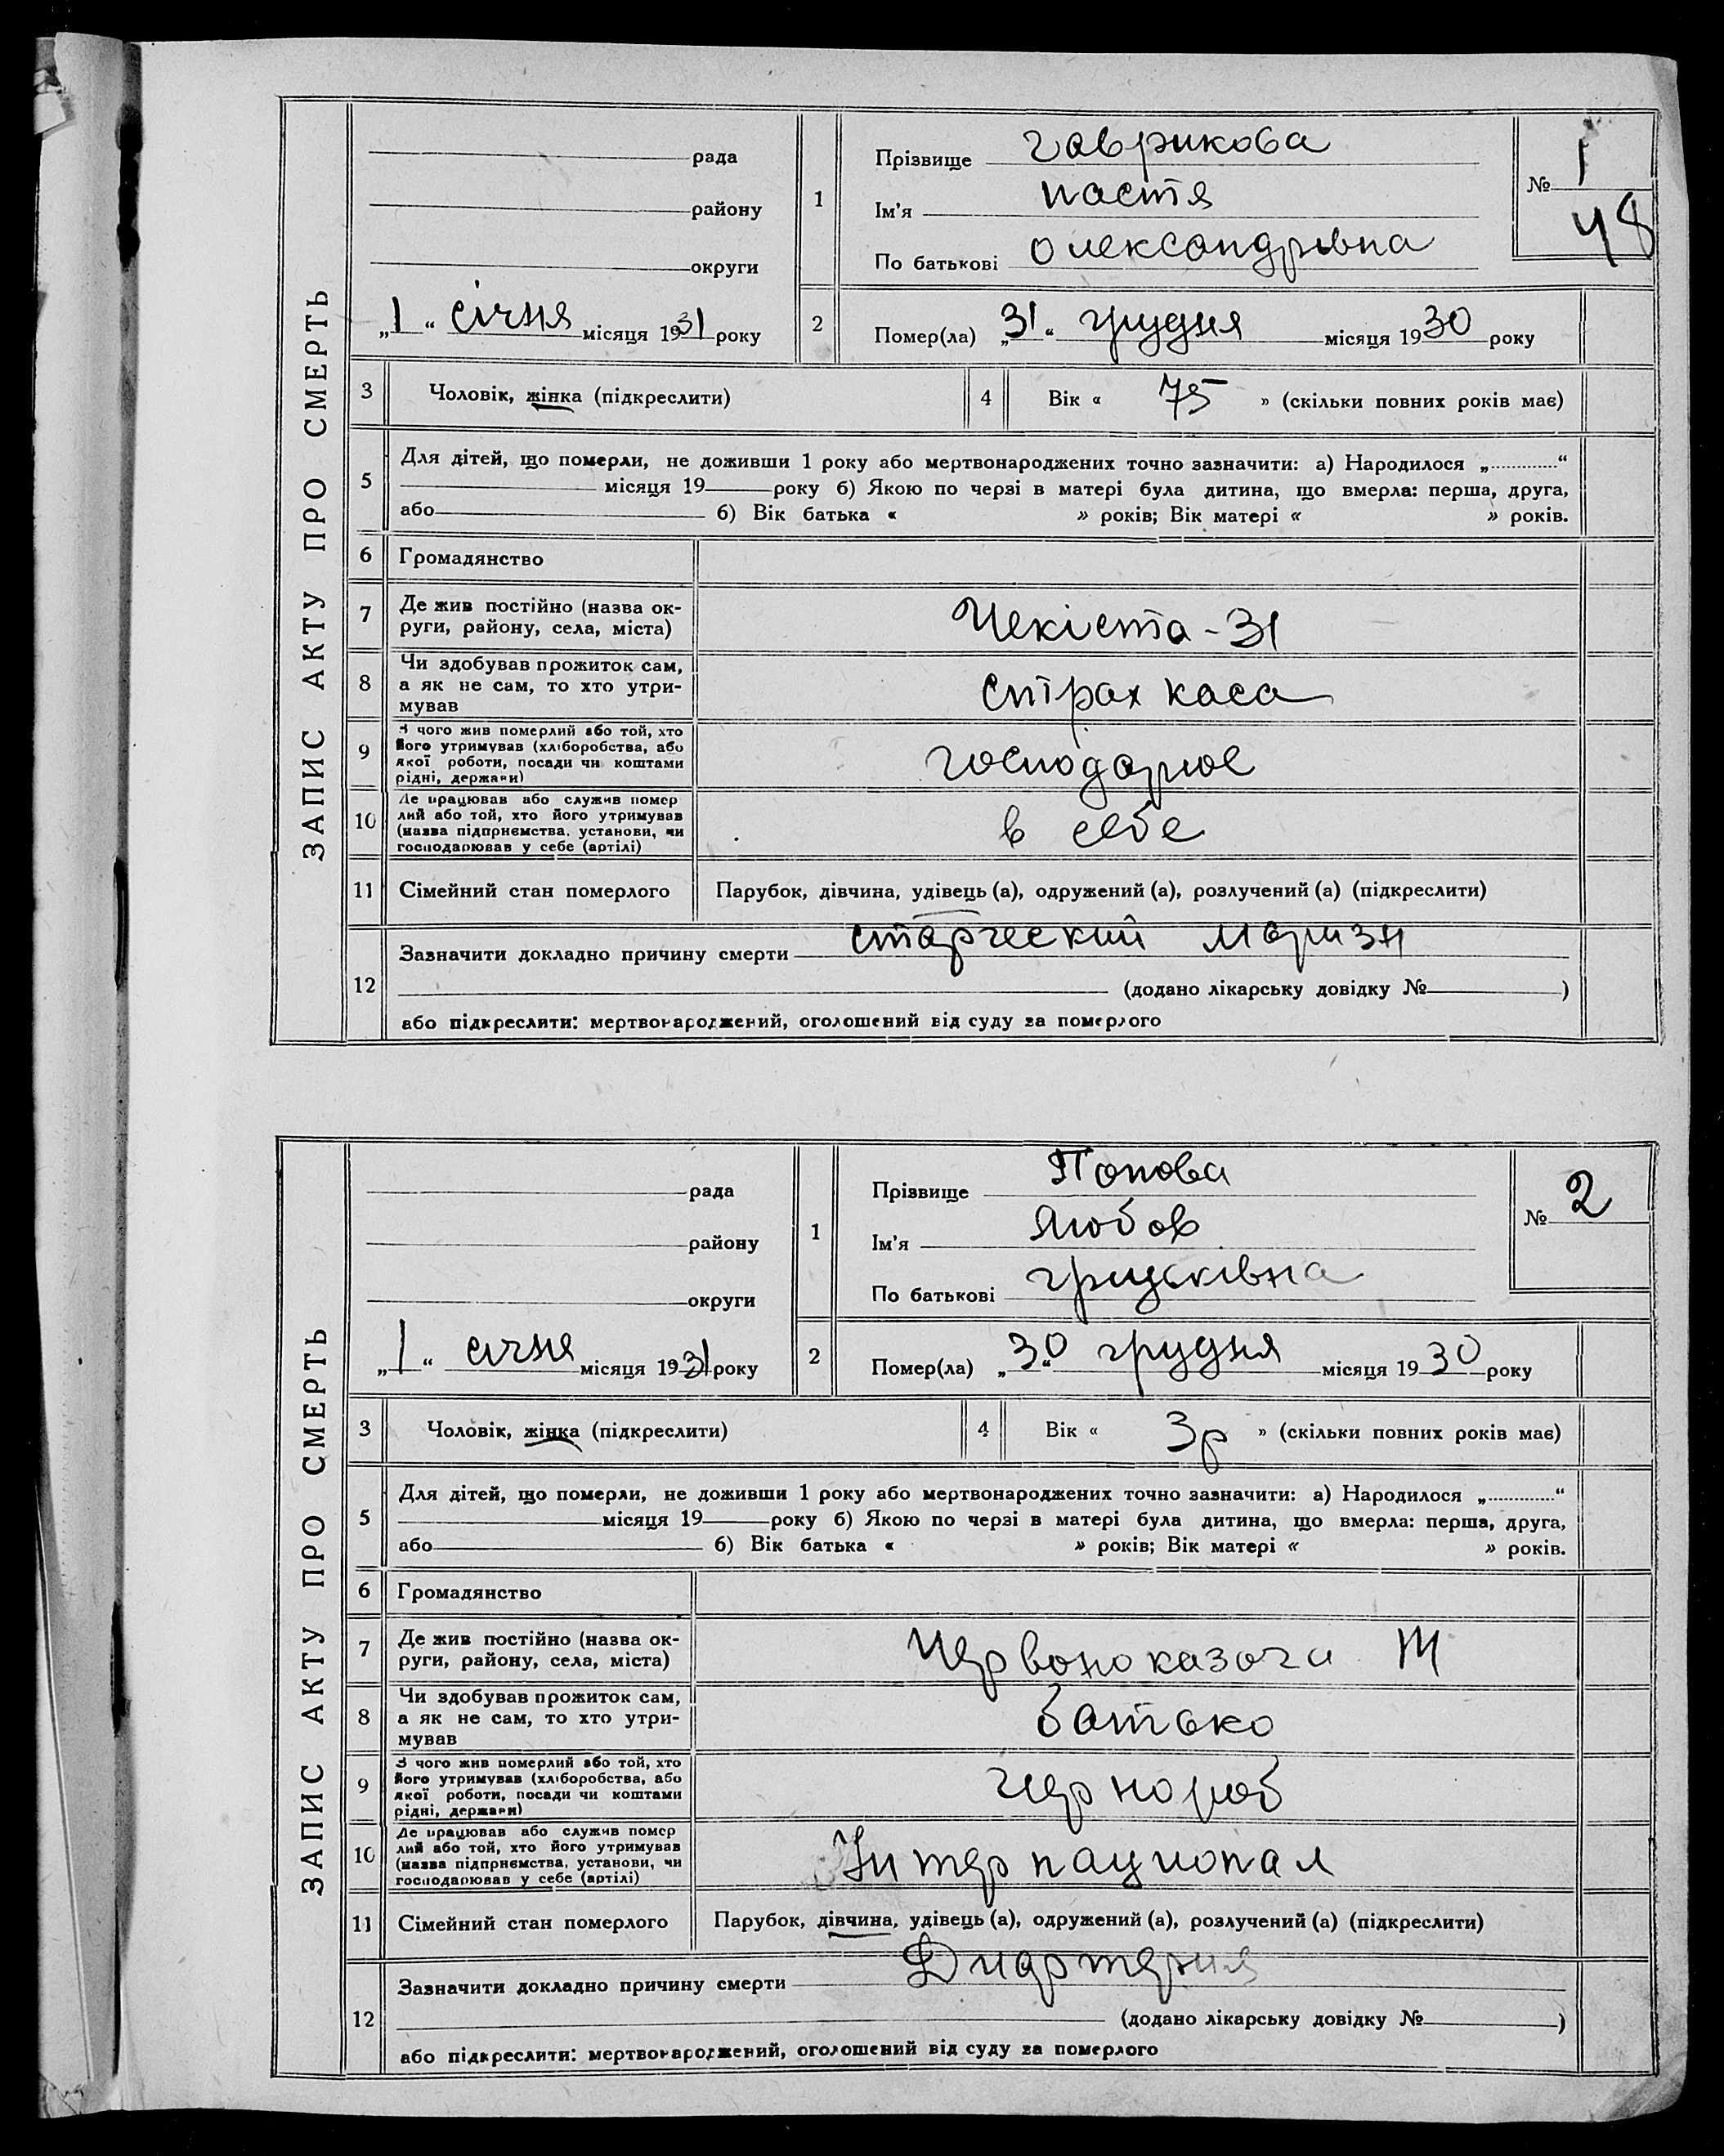 ЗАПИС АКТУ ПРО СМЕРТЬ
рада
району
округи
„1“ січня місяця 1931 року
1
Прізвище Гаврикова
Ім'я Настя
По батькові Олександрівна
№ 1
48
2
Помер(ла) „31“ грудня місяця 1930 року
3
Чоловік, жінка (підкреслити)
4
Вік « 75 » (скільки повних років має)
5
Для дітей, що померли, не доживши 1 року або мертвонароджених точно зазначити: а) Народилося „............“
місяця 19 року б) Якою по черзі в матері була дитина, що вмерла: перша, друга,
або б) Вік батька « » років; Вік матері « » років.
6
Громадянство
7
Де жив постійно (назва ок-
руги, району, села, міста)
Чекіста - 31
8
Чи здобував прожиток сам,
а як не сам, то хто утри-
мував
Страх каса
9
З чого жив померлий або той, хто
його утримував (хліборобства, або
якої роботи, посади чи коштами
рідні, держави)
господарює
10
Де працював або служив помер
лий або той, хто його утримував
(назва підприємства, установи, чи
господарював у себе (артілі)
в себе
11
Сімейний стан померлого
Парубок, дівчина, удівець (а), одружений (а), розлучений (а) (підкреслити)
12
Зазначити докладно причину смерти старческий маризм
(додано лікарську довідку № )
або підкреслити: мертвонароджений, оголошений від суду за померлого
ЗАПИС АКТУ ПРО СМЕРТЬ
рада
району
округи
„1“ січня місяця 1931 року
1
Прізвище Попова
Ім'я Любов
По батькові Грицьківна
№ 2
2
Помер(ла) „30“ грудня місяця 1930 року
3
Чоловік, жінка (підкреслити)
4
Вік « 3р » (скільки повних років має)
5
Для дітей, що померли, не доживши 1 року або мертвонароджених точно зазначити: а) Народилося „............“
місяця 19 року б) Якою по черзі в матері була дитина, що вмерла: перша, друга,
або б) Вік батька « » років; Вік матері « » років.
6
Громадянство
7
Де жив постійно (назва ок-
руги, району, села, міста)
Червоноказача
8
Чи здобував прожиток сам,
а як не сам, то хто утри-
мував
батько
9
З чого жив померлий або той, хто
його утримував (хліборобства, або
якої роботи, посади чи коштами
рідні, держави)
чернороб
10
Де працював або служив помер
лий або той, хто його утримував
(назва підприємства, установи, чи
господарював у себе (артілі)
Интернационал
11
Сімейний стан померлого
Парубок, дівчина, удівець (а), одружений (а), розлучений (а) (підкреслити)
12
Зазначити докладно причину смерти
(додано лікарську довідку № )
або підкреслити: мертвонароджений, оголошений від суду за померлого